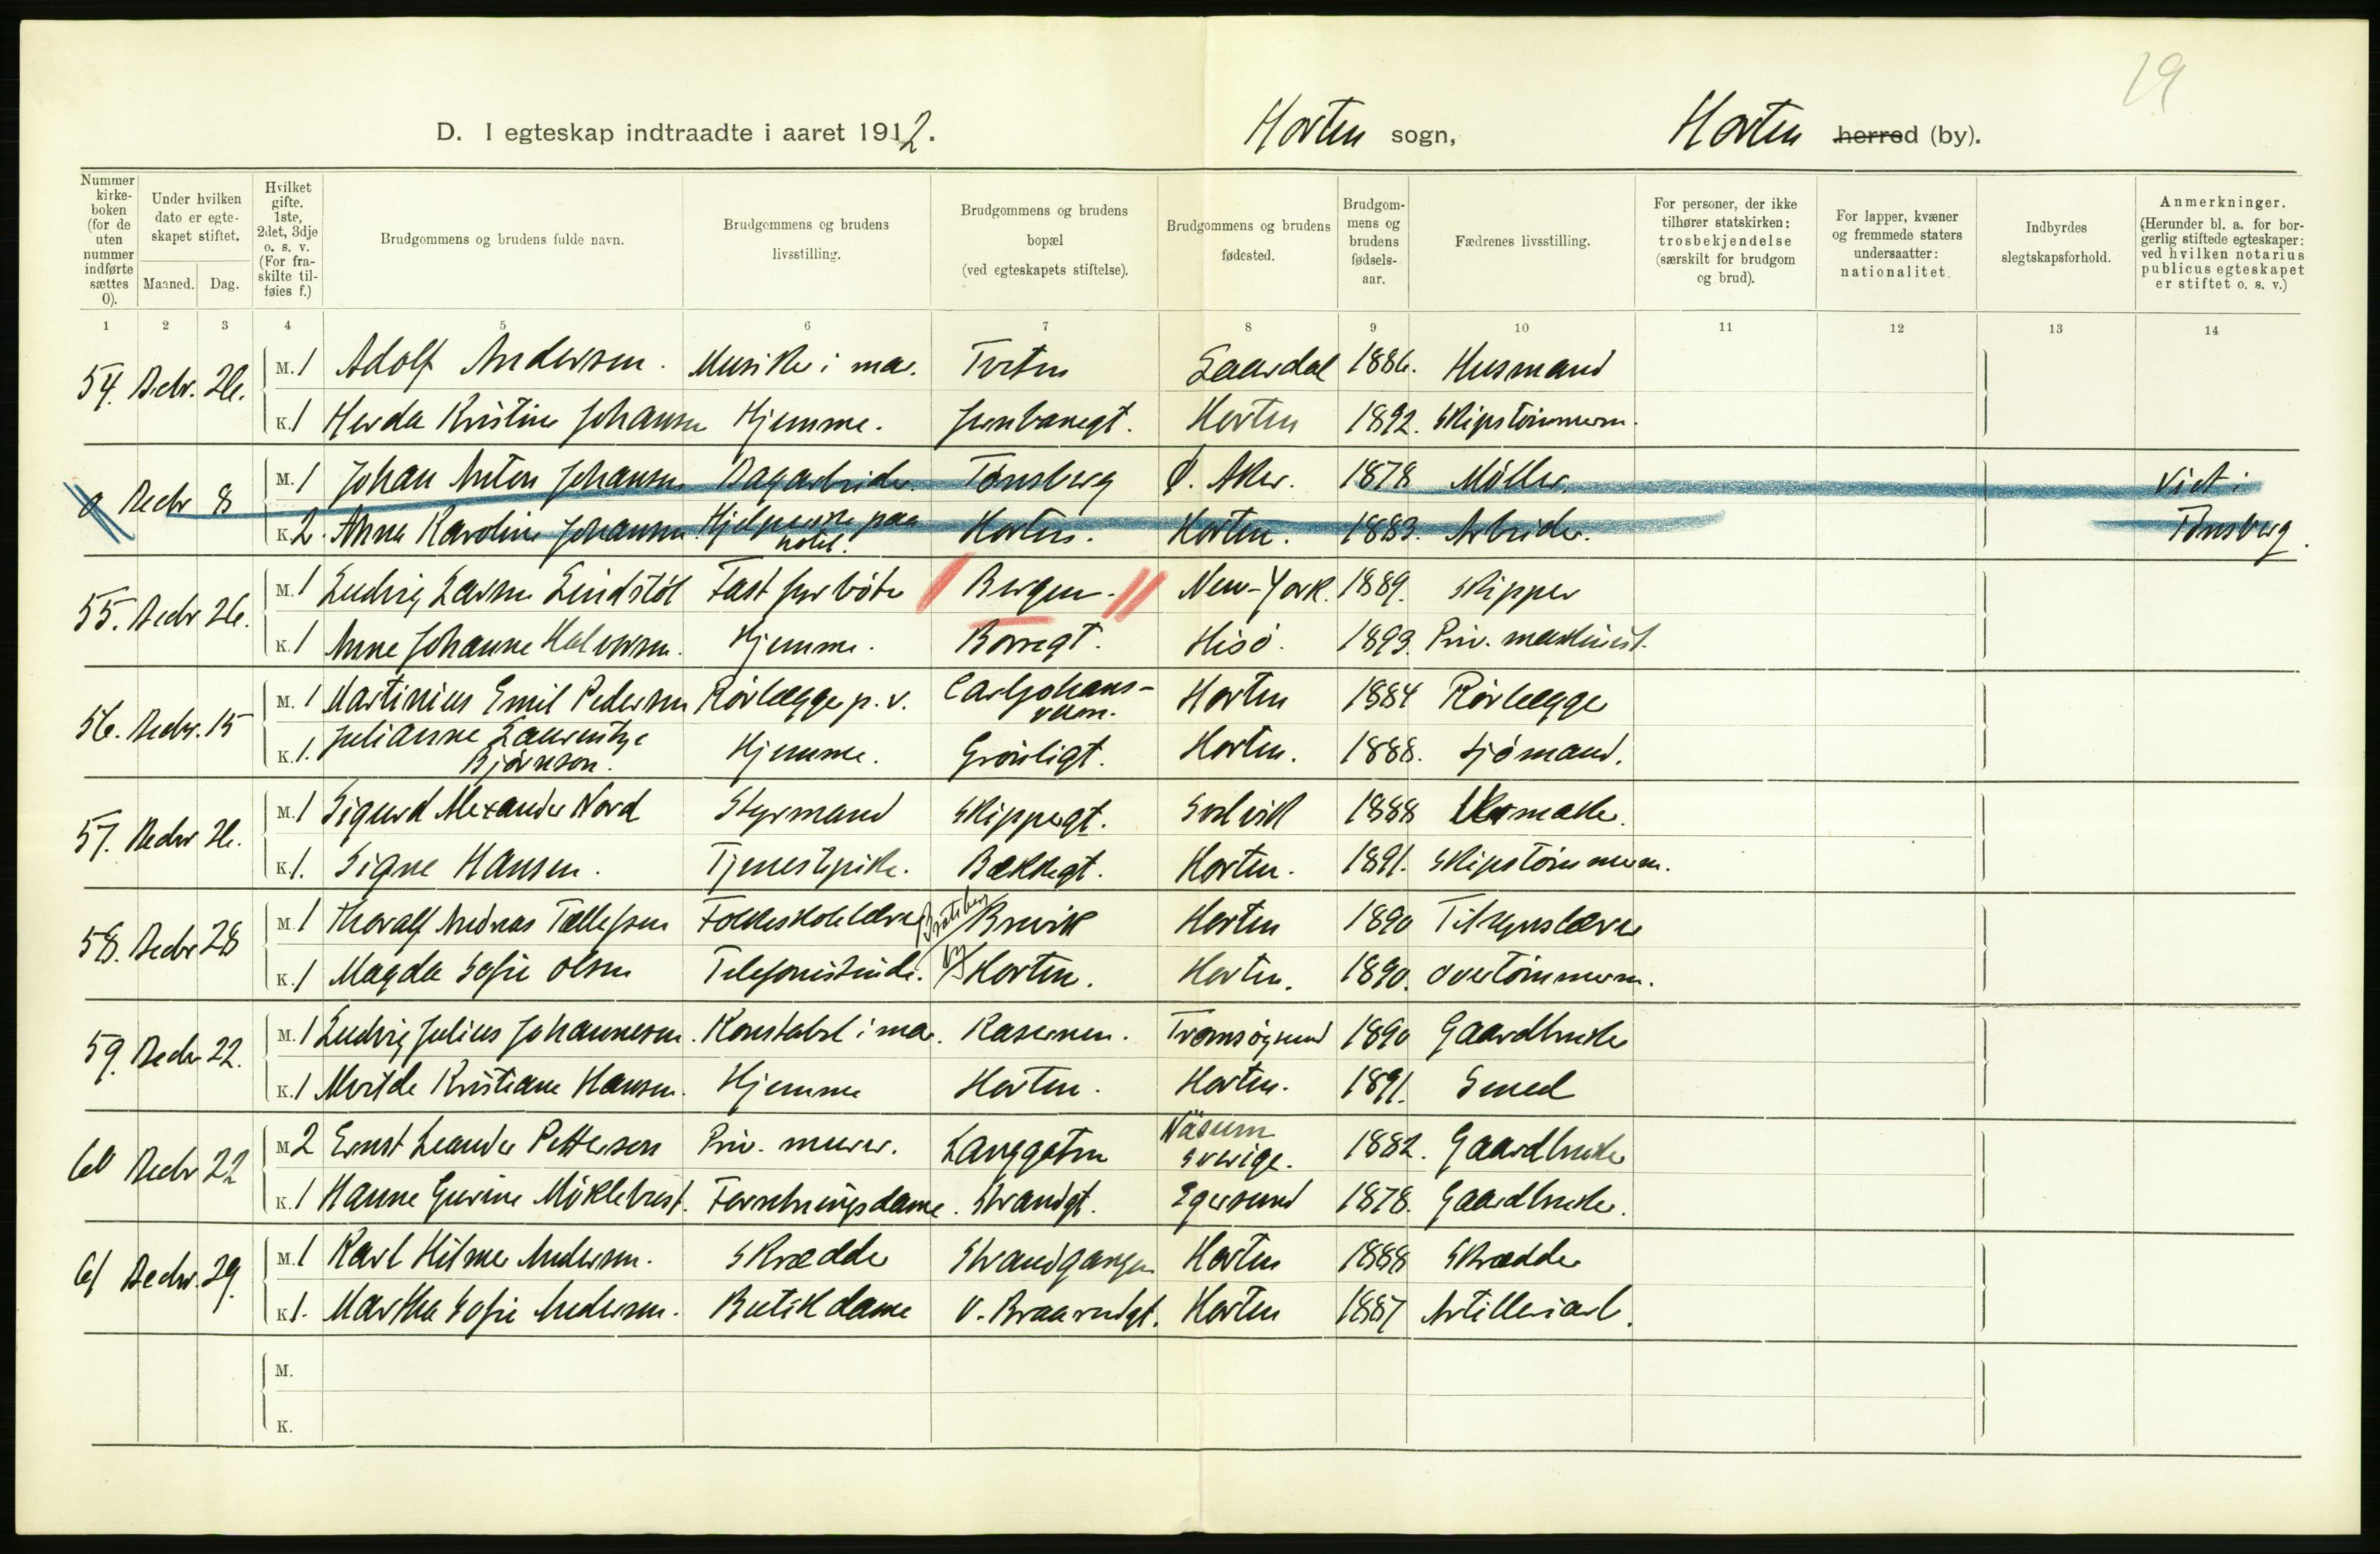 19
D. I egteskap indtraadte i aaret 1912. Horten sogn, Horten herred (by).
Nummer kirke-boken (for de uten nummer indførte sættes 0).
Under hvilken dato er egte-skapet stiftet.
Maaned. Dag.
Hvilket gifte. 1ste, 2det, 3dje o. s. v. (For fra-skilte til-føies f.)
Brudgommens og brudens fulde navn.
Brudgommens og brudens livsstilling.
Brudgommens og brudens bopæl (ved egteskapets stiftelse).
Brudgommens og brudens fødested.
Brudgom-mens og brudens fødsels-aar.
Fædrenes livsstilling.
For personer, der ikke tilhører statskirken: trosbekjendelse (særskilt for brudgom og brud).
For lapper, kvæner og fremmede staters undersaatter: nationalitet.
Indbyrdes slegtskapsforhold.
Anmerkninger. (Herunder bl. a. for bor-gerlig stiftede egteskaper: ved hvilken notarius publicus egteskapet er stiftet o. s. v.)
1 2 3 4 5 6 7 8 9 10 11 12 13 14
54. Decbr. 26. M. 1 Adolf Andersen. Musiker i mar. Torten Laardal 1886. Husmand
K. 1 Herda Kristine Johansen Hjemme. Jernbanegt. Horten 1892. Skipstømmerm.
0 Decbr 8 M. 1 Johan Anton Johansen Dagarbeider. Tønsberg Ø. Aker. 1878 Møller. Viet i
K. 2. Anna Karoline Johansen. Hjelpepike paa hotel. Horten. Horten. 1883. Arbeider. Tønsberg.
55. Decbr 26. M. 1 Ludvig Larsen Lindstöl Fast fyrböter Bergen. New-York. 1889. Skipper
K. 1 Anne Johanne Halvorsen. Hjemme. Borregt. Hisö. 1893. Priv. maskinist.
56. Decbr. 15 M. 1 Martinius Emil Pedersen Rörlægger p. v. Carljohans-vern. Horten 1884 Rörlægger
K. 1. Julianne Laurentze Bjørnson. Hjemme. Grønligt. Horten. 1888. Sjømand.
57. Decbr 26. M. 1 Sigurd Alexander Nord Styrmand Skippergt. Solvik 1888 Urmaker.
K. 1. Signe Hansen. Tjenestepike. Bækkegt. Horten. 1891. Skipstømmerm.
58. Decbr 28 M. 1 Thoralf Andreas Tollefsen Folkeskolelærer Brevik Horten 1890 Tilsynslærer
K. 1 Magda Sofie Olsen Telefonistinde. Horten. Horten. 1890. Overtømmerm.
59. Decbr 22. M. 1 Ludvig Julius Johannesen. Konstabel i mar. Kasernen. Tromsøysund 1890 Gaardbruker
K. 1 Alvilde Kristiane Hansen. Hjemme Horten. Horten. 1891. Smed
60 Decbr 22 M. 2 Ernst Leander Petterson Priv. murer. Langgaten Näsum Sverige. 1882. Gaardbruker
K. 1 Hanne Gurine Möklebust. Forretningsdame. Strandgt. Egersund 1878. Gaardbruker.
61 Decbr. 29. M. 1 Karl Hilmer Andersen. Skrædder Strandgangen Horten 1888 Skrædder
K. 1. Martha Sofie Andersen. Butikdame V. Braarudgt. Horten 1887 Artilleriarb.
M.
K.